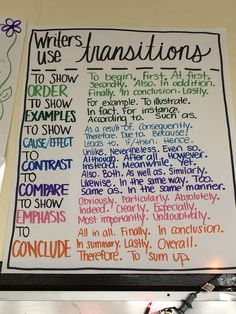 Writers use transitions
TO SHOW ORDER
To begin, First, At first,
Secondly. Also. In addition.
Finally. In conclusion. Lastly.
TO SHOW EXAMPLES
For example. To illustrate.
In fact. For instance.
According to. Such as.
TO SHOW CAUSE/EFFECT
As a result of. Consequently.
Therefore. Due to. Because.
Leads to. If/then. Hence.
TO CONTRAST
Unlike, Nevertheless, Even so.
Although. After all. However.
Instead. Meanwhile. Yet.
TO COMPARE
Also. Both. As well as. Similarly.
Likewise. In the same way. Too.
Same as. In the same manner.
TO SHOW EMPHASIS
Obviously. Particularly. Absolutely.
Indeed. Clearly. Especially.
Most importantly. Undoubtedly.
TO CONCLUDE
All in all. Finally. In conclusion.
In summary. Lastly. Overall.
Therefore. To sum up.